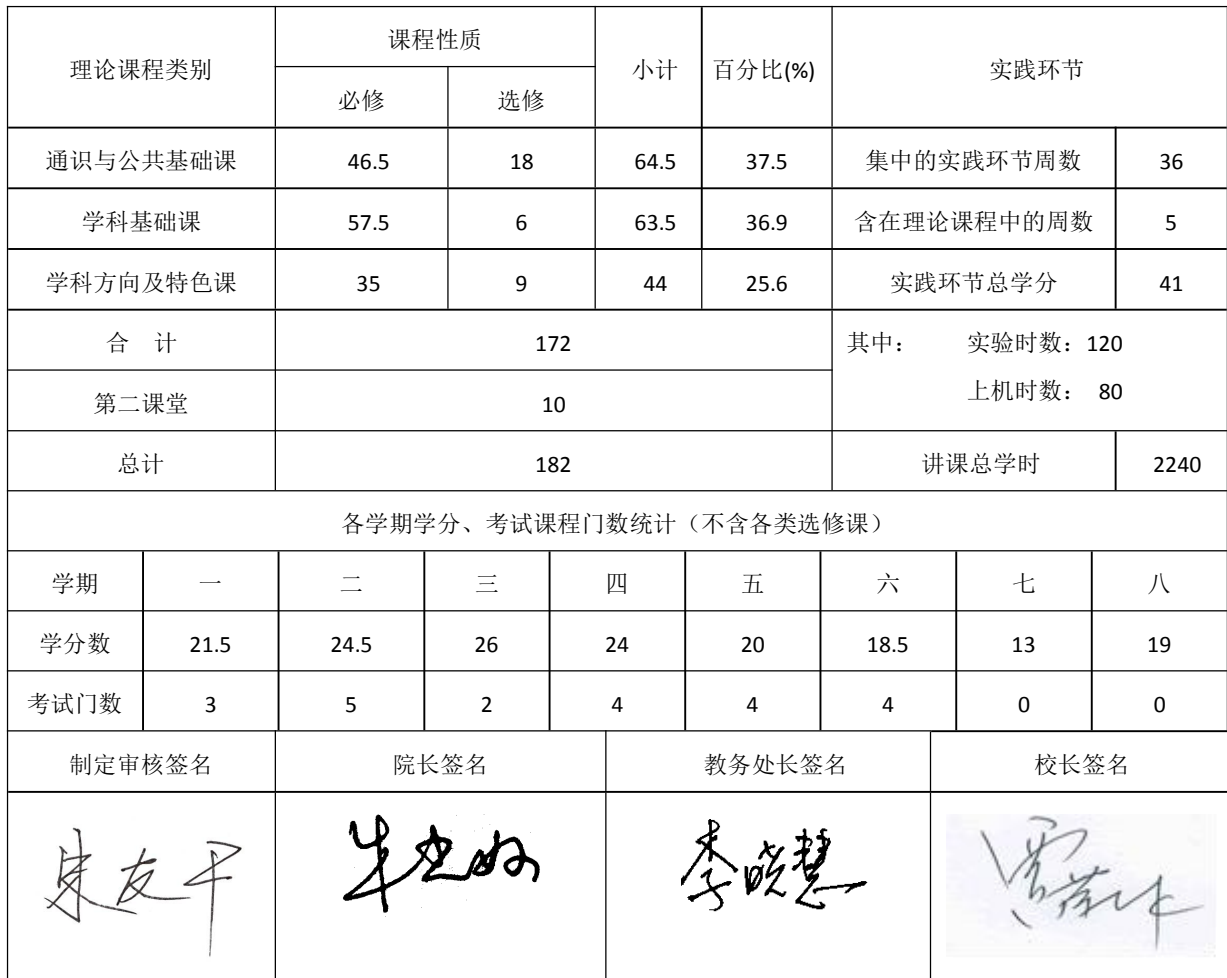 理论课程类别 课程性质 小计 百分比(%) 实践环节
必修 选修
通识与公共基础课 46.5 18 64.5 37.5 集中的实践环节周数 36
学科基础课 57.5 6 63.5 36.9 含在理论课程中的周数 5
学科方向及特色课 35 9 44 25.6 实践环节总学分 41
合 计 172 其中： 实验时数：120
第二课堂 10 上机时数： 80
总计 182 讲课总学时 2240
各学期学分、考试课程门数统计（不含各类选修课）
学期 一 二 三 四 五 六 七 八
学分数 21.5 24.5 26 24 20 18.5 13 19
考试门数 3 5 2 4 4 4 0 0
制定审核签名 院长签名 教务处长签名 校长签名
李晓慧